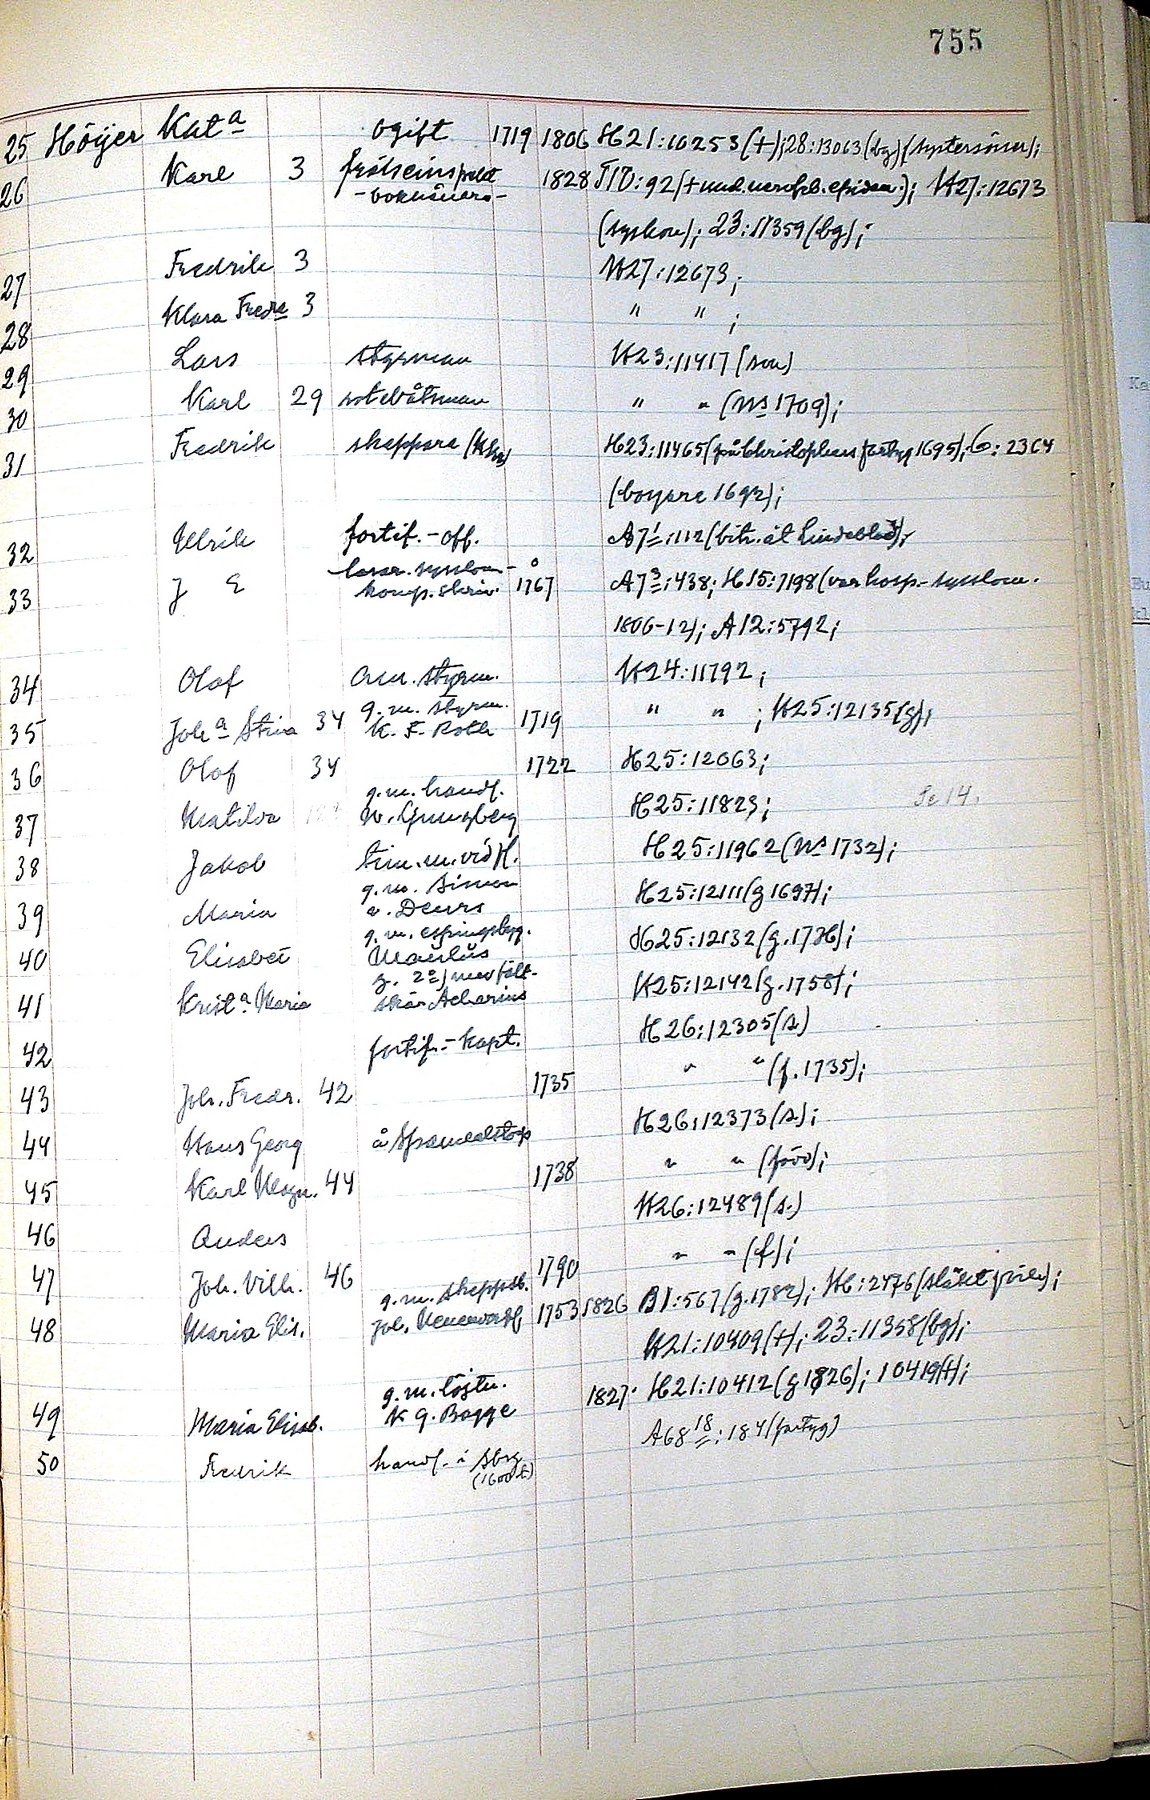 755
25 Höijer Kat<sup>a</sup> ogift 1719 1806 H21:10253(+); 28:13063(bg)(systersöner);
26 Karl 3 frälseinspekt 1828 TIV:92(+ und. epidem.); H27:12673
-bokhållare-
(syskon); 23:11359(bg);
27 Fredrik 3 H27:12673;
28 Klara Fredr<sup>a</sup> 3 " " ;
29 Lars styrman H23:11417(son)
30 Karl 29 " " (N<sup>s</sup> 1709);
31 Fredrik skeppare H23:11465(på Christophers fartyg 1695); 6:2364
(borgare 1692);
32 Ullrik fortif.-off. A7<sup>1</sup>:112(bitr. åt Lindeblad);
lasar. sysslom-
33 J E komp.skriv. 1767 A7<sup>3</sup>:438; H15:7198(var hosp.-sysslom.
1806-12); A12:5792;
34 Olof Am. styrm. H24:11792;
g.m. styrm.
35 Joh<sup>a</sup> Stina 34 K. F. Roth 1719 " " ; H25:12135(g);
36 Olof 34 1722 H25:12063;
g.m. handl.
37 Matilda W. Ljungberg H25:11823; Se 14.
38 Jakob tim.m. vid H. H25:11962(N<sup>s</sup> 1732);
g.m. Simon
39 Maria v. Deurs H25:12111(g 1697);
g.m. espingsbyg.
40 Elisabet Maulius H25:12132(g. 1736);
g. 2<sup>o</sup>) med fält-
41 Krist<sup>a</sup> Maria skär Acharius H25:12142(g. 1758);
42 fortif.-kapt. H26:12305(s)
43 Joh. Fredr. 42 1735 " " (f. 1735);
44 Hans Georg å H26:12373(s);
45 Karl Magn. 44 1738 " " (född);
46 Anders H26:12489(s.)
47 Joh. Vilh. 46 1790 " " (f);
g.m. skeppsb.
48 Maria Elis. Joh. 1753 1826 B1:567(g. 1782); H6:2476(släktförh);
H21:10409(+); 23:11358(bg);
g.m. löjtn.
49 Maria Elisab. K G. Bagge 1827 H21:10412(g 1826); 10419(+);
50 Fredrik handl. i Sbrg A68<sup>18</sup>:184(fartyg)
(1600 t)